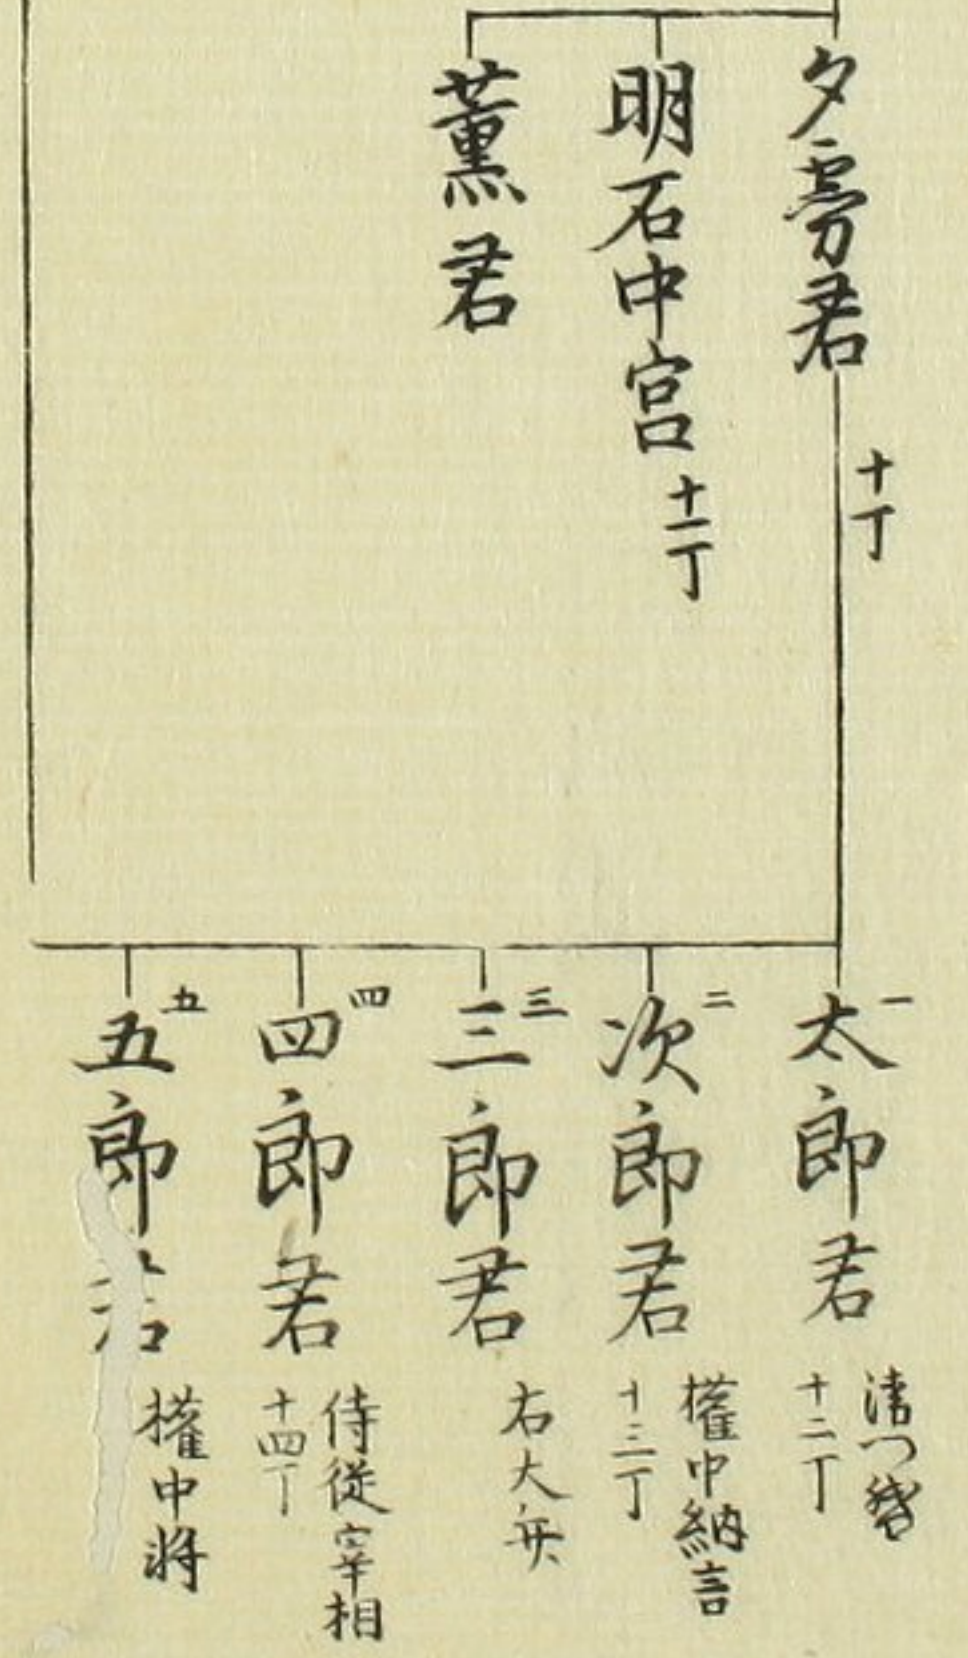 夕霧君
十丁
明石中宮
十一丁
薫君
一
太郎君
衛門督
十二丁
二
次郎君
權中納言
十三丁
三
三郎君
右大弁
四
四郎君
侍従宰相
十四丁
五
五郎君
權中将